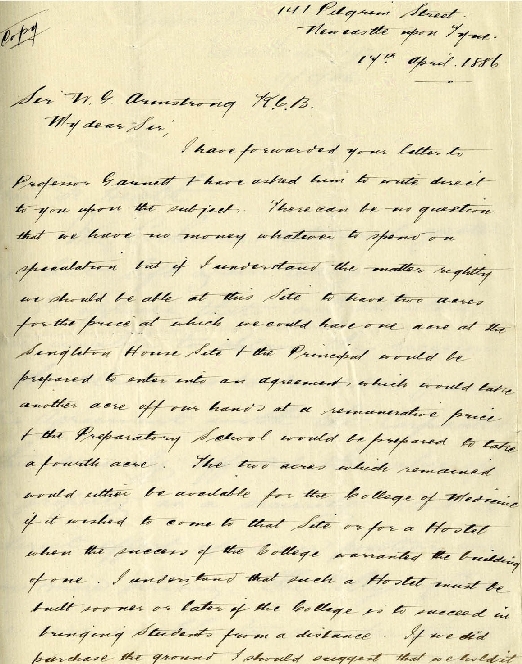 Copy
141 Pilgrim Street.
Newcastle upon Tyne.
14th April. 1886
Sir W. G Armstrong K.C.B.
My dear Sir,
I have forwarded your letter to
Professor Garnett & have asked him to write direct
to you upon the subject. There can be no question
that we have no money whatever to spend on
speculation but if I understand the matter rightly
we should be able at this Site to have two acres
for the price at which we could have one acre at the
Singleton House Site & the Principal would be
prepared to enter into an agreement, which would take
another acre off our hands at a remunerative price
& the Preparatory School would be prepared to take
a fourth acre. The two acres which remained
would either be available for the College of Medicine
if it wished to come to that Site or for a Hostel
when the success of the College warranted the building
of one. I understand that such a Hostel must be
built sooner or later if the College is to succeed in
bringing Students from a distance. If we did
purchase the ground I should suggest that we hold it